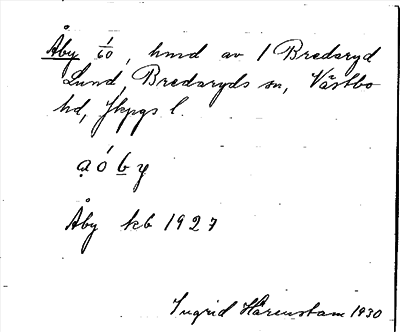 Åby 1/60, hmd av 1 Bredaryd
Lund, Bredaryds sn, Västbo
hd, Jkpgs l.
ạ ó b y
Åby kb 1927
Ingrid Härenstam 1930